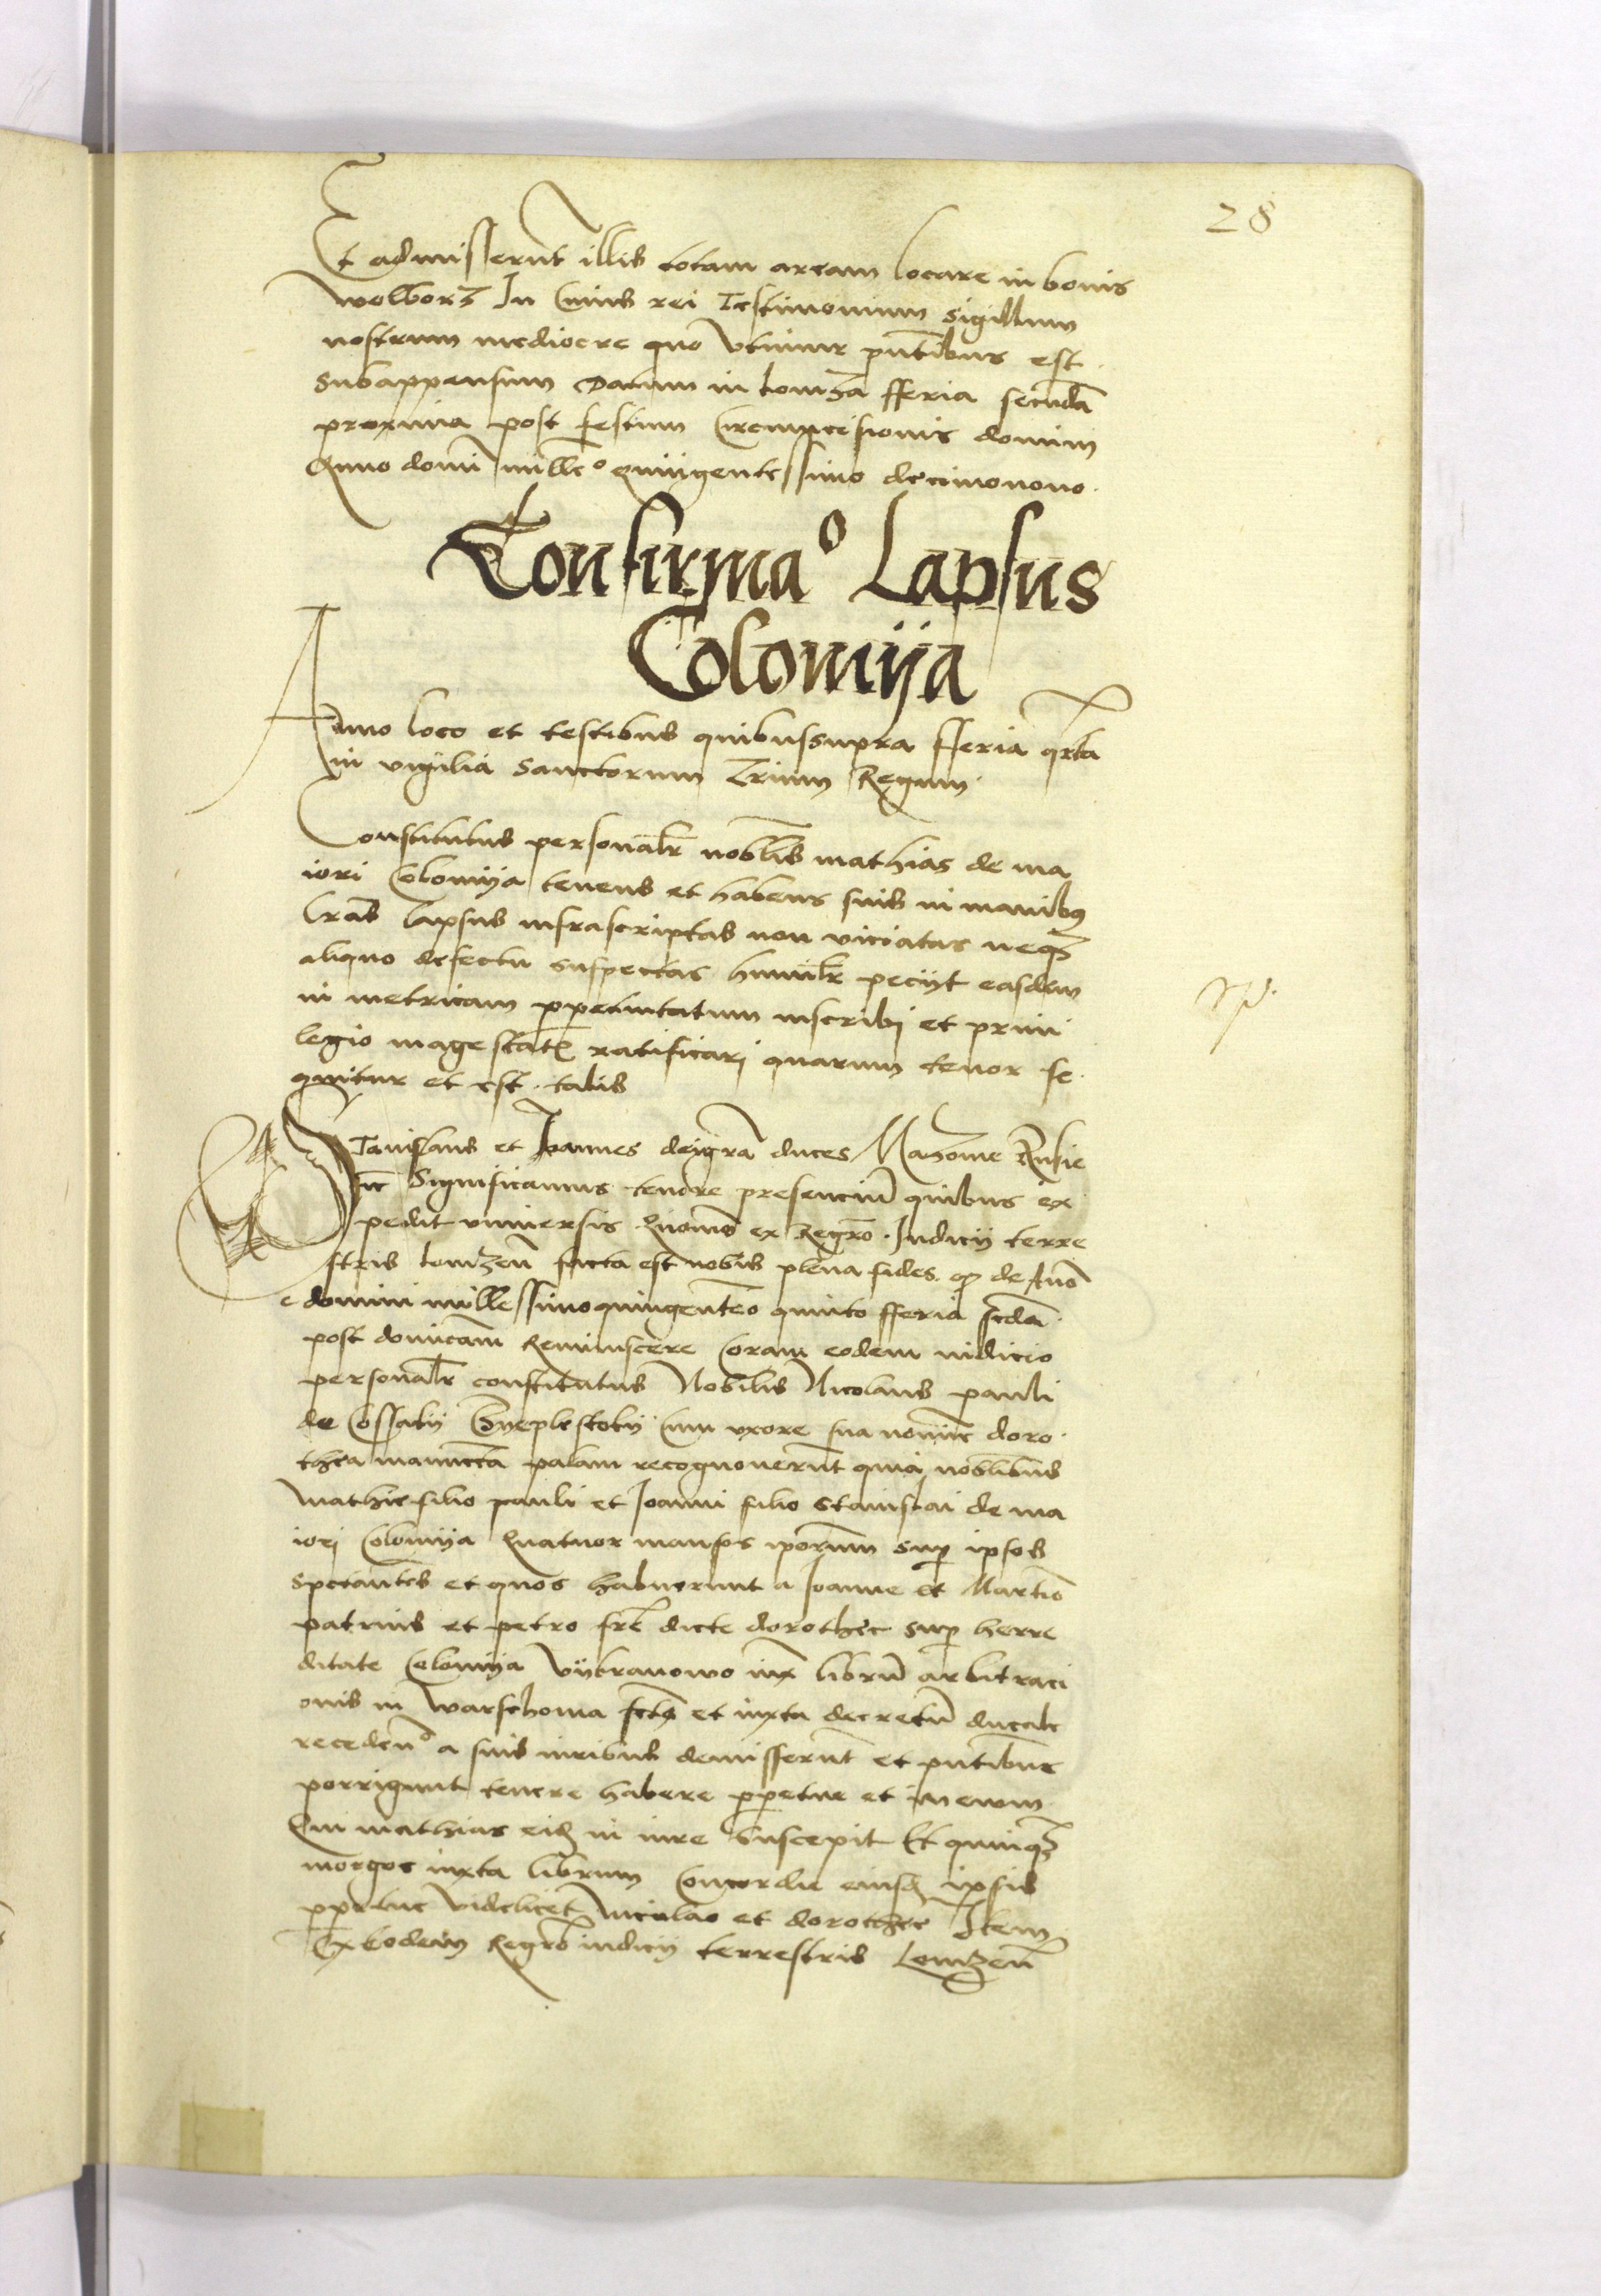 28
Et admisserūt illis totam aream locare in bonis
wolborz In Cuius rei Testimonium sigillum
nostrum mediocre quo vtimur pūtibus est
subappensum Datum in Lomza fferia secūda
proxima post festum Circumcisionis domini
Anno domi mille° quingentessimo decimonono.
Confirmaº Lapsus
Colomija
Anno loco et testibus quibussupra fferia qrta
in vigilia Sanctorum Trium Regum
Constitutus personalr nobilis mathias de ma
iori Colomija tenens et habens suis in manibus
lras lapsus infrascriptas non viciatas neqz
aliquo defectu suspectas humilr peciit easdem
in metricam ppetuitatum inscribj et priui
legio magestatis ratificarj quarum tenor se
quitur et est talis
Stanislaus et Joannes deigra duces Mazouie Russie
etc Significamus tenore presenciū quibus ex
pedit vniuersis Quomō ex Regrō Judicij terre
stris lomzeñ facta est nobis plena fides qz de Anō
domini millessimoquingenteō quinto fferia scda
post dominicam Reminiscere Coram eodem iudicio
personalr constitutus Nobilis Nicolaus pauli
de Cossaky cum vxore sua nomine doro
thea palam recognouerūt quia nobilibus
mathie filio pauli et Joanni filio Stanislai de ma
iorj Colomija Quatuor mansos iporum sup ipsos
spectantes et quos habuerunt a Joanne et Martiō
patruis et petro frē dicte dorothee sup herre
ditate Colomija iux librū arbitraci
onis in Warschouia et iuxta decretū ducale
receden° a suis iuribus demisserūt et pūtibus
porrigunt tenere habere ppetue et in ewum
Qui mathias in iure suscepit Et quinqz
morgos iuxta librum Concordie ipsis
ppetue videlicet Nicolao et dorothee Item
Ex Eodem Regrō iudicij terrestris Lomzeñ